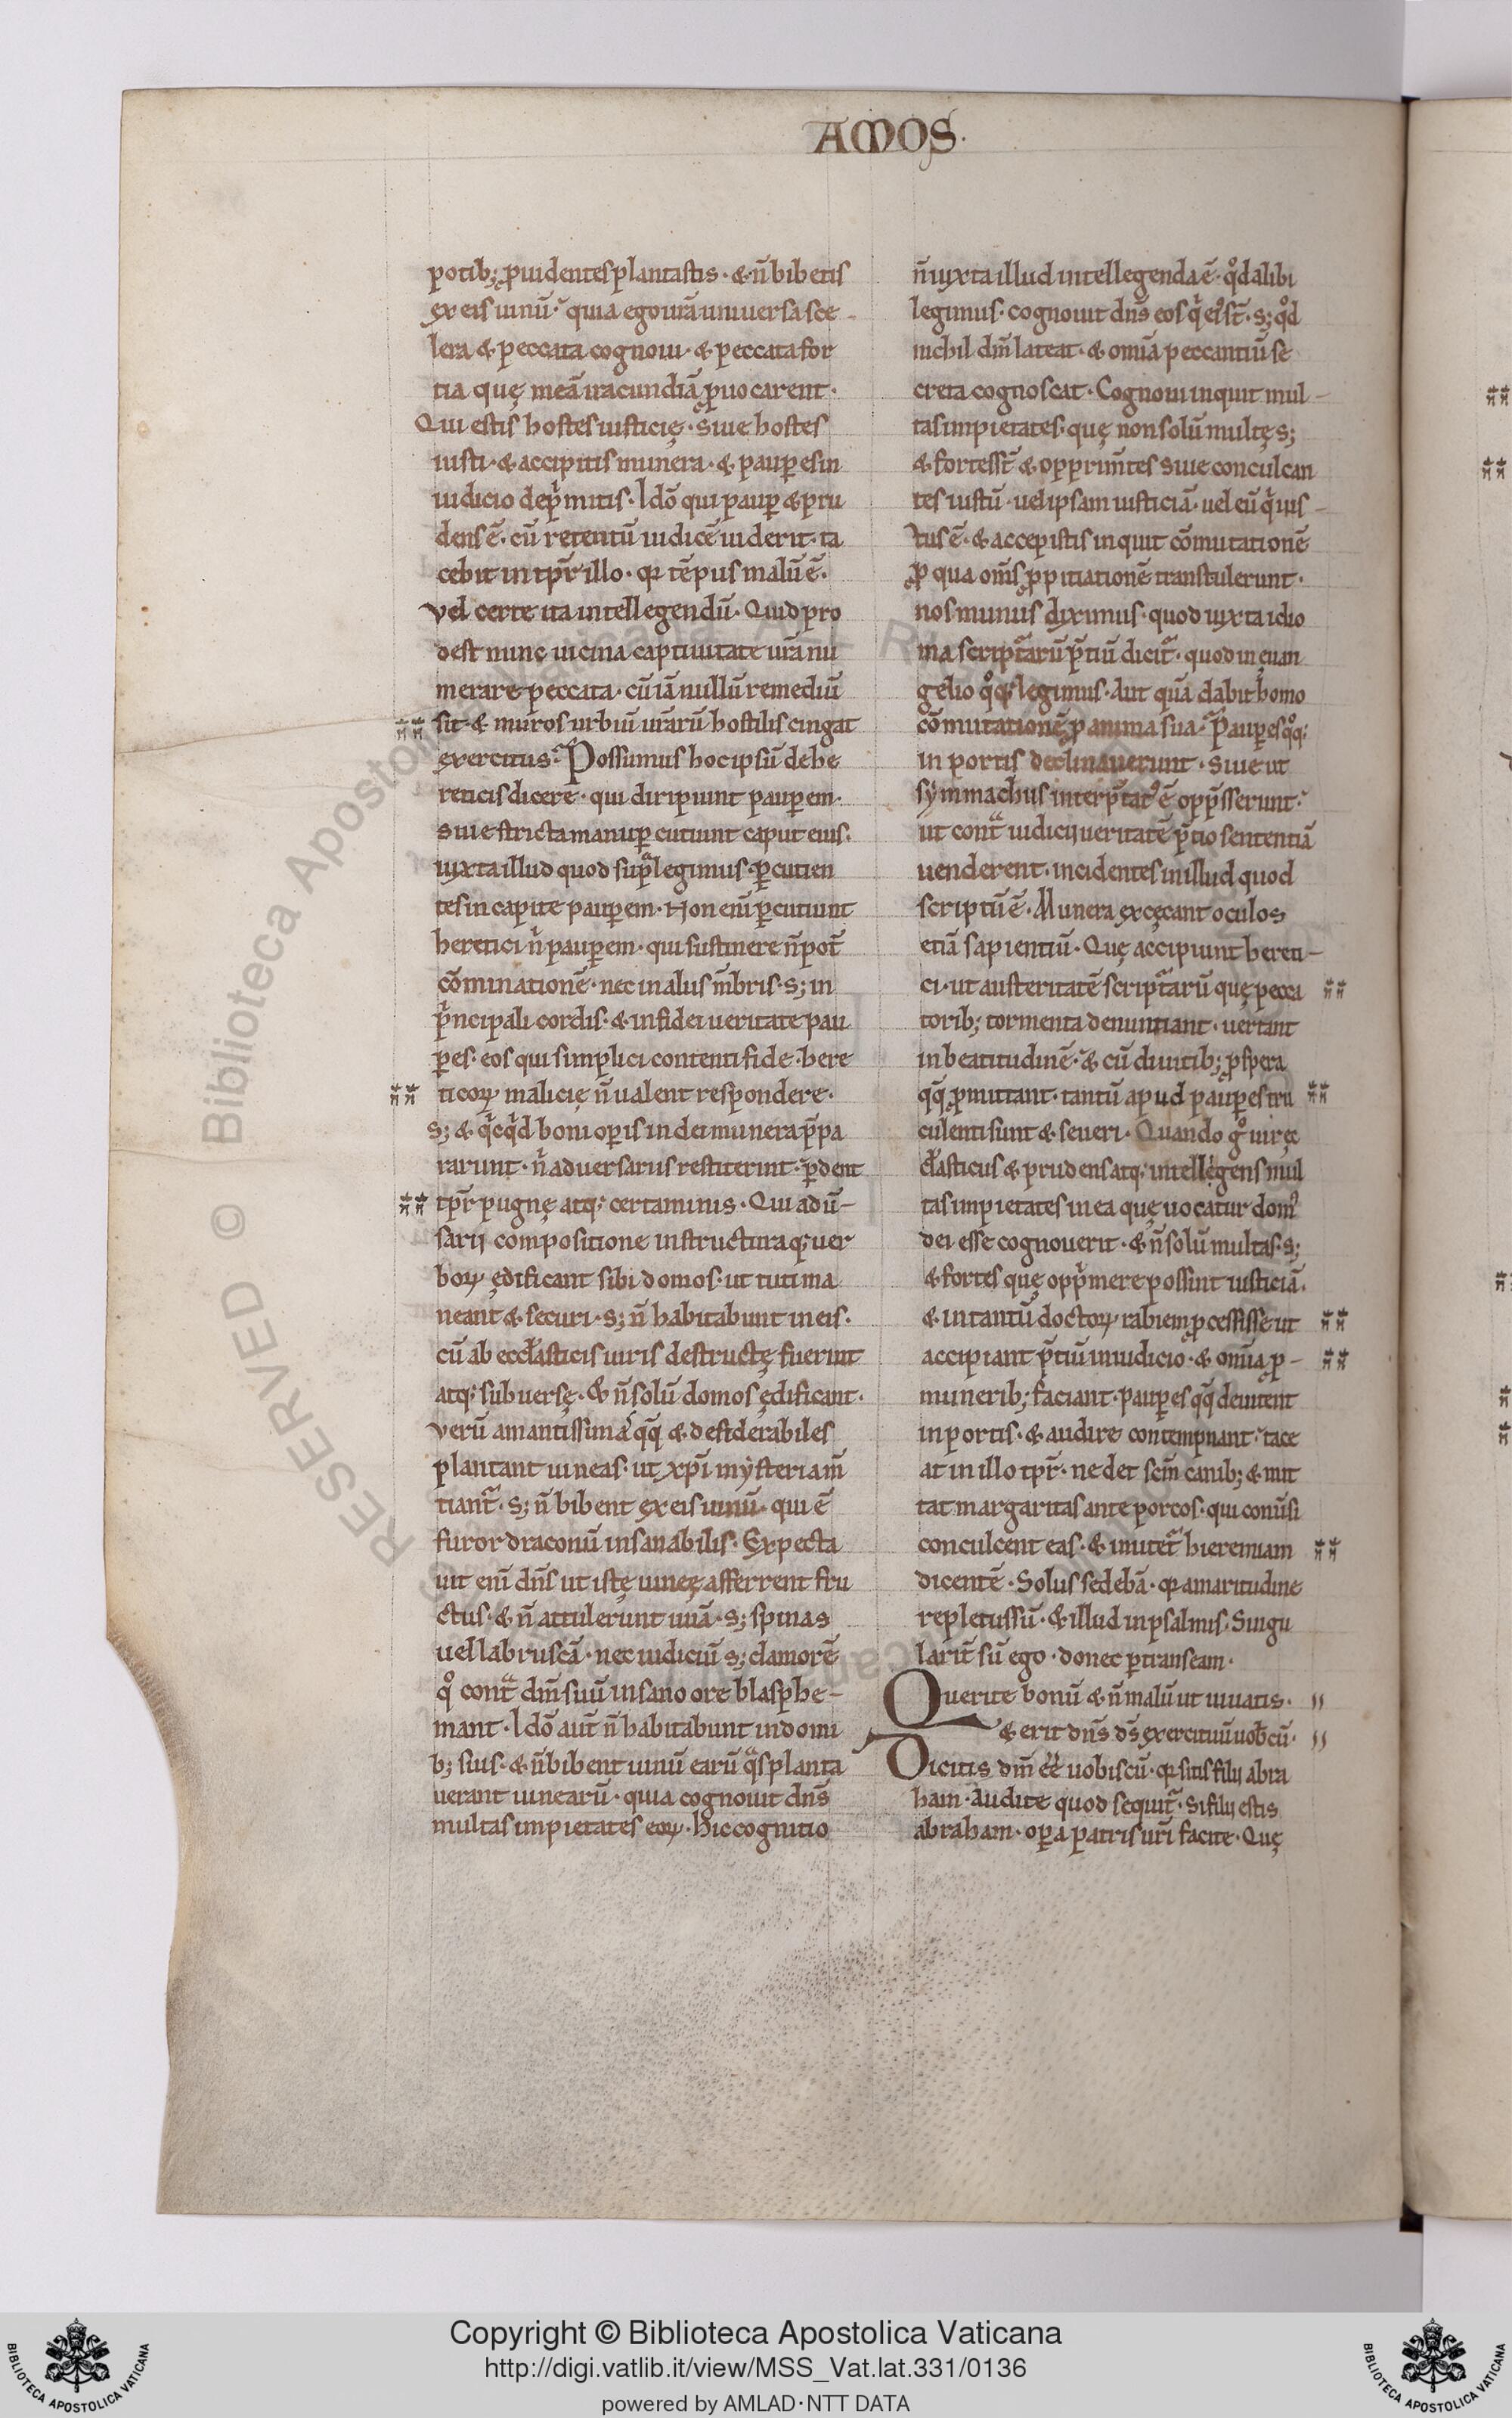 AMOS.
potib; ꝓuidentes plantastis · & n̄ bibetis
ex eis uinū · quia ego ur̄a uniuersa sce
lera & peccata cognoui · & peccata for
tia quę meā iracundiā ꝓuocarent ·
Qui estis hostes iusticię · Siue hostes
iusti · & accipitis munera · & pauꝑes in
iudicio dep̄mitis · Idō qui pauꝑ & pru
dens ē · cū retentū iudicē uiderit · ta
cebit in tp̄r illo · qꝛ tēpus malū ē ·
Vel certe ita intellegendū · Quid pro
dest nunc uicina captiuitate ur̄a nu
merare peccata · cū iā nullū remediū
sit · & muros urbiū ur̄arū hostilis cingat
exercitus · Possumus hoc ipsū de he
reticis dicere · qui diripiunt pauꝑem ·
Siue stricta manu ꝑcutiunt caput eius ·
iuxta illud quod supͣ legimus · ꝑcutien
tes in capite pauꝑem · Non enī ꝑcutiunt
heretici nͥ pauꝑem · qui sustinere n̄ pot̄
cōminationē · nec in alus m̄bris · s; in
pͥncipali cordis · & in fidei ueritate pau
ꝑes · eos qui simplici contenti fide · here
ticoꝝ malicię n̄ ualent respondere ·
s; & qͥcqͥd boni oꝑis in dei munera p̄pa
rarunt · nͥ aduersarus restiterint · ꝑdent
tp̄r pugnę atq; certaminis · Qui adū
sarij compositione instructuraq; uer
boꝝ ędificant sibi domos · ut tuti ma
neant & securi · s; n̄ habitabunt in eis ·
cū ab eccl̄asticis uiris destructę fuerint
atq; subuersę · & n̄ solū domos ędificant ·
verū amantissima qq̄ & desiderabiles
plantant uineas · ut xp̄i mẏsteria m̄
tiantᷣ · s; n̄ bibent ex eis uinū · qui ē
furor draconū insanabilis · Expecta
uit enī dn̄s ut istę uineę afferrent fru
ctus · & n̄ attulerunt uuā · s; spinas
uel labruscā · nec iudiciū s; clamorē
qͦ contͣ dm̄ suū insano ore blasphe
mant · Idō aut̄ n̄ habitabunt in domi
b; suis · & n̄ bibent uinū earū qͣs planta
uerant uinearū · quia cognouit dn̄s
multas impietates eoꝝ · Hic cognitio
n̄ iuxta illud intellegenda ē · qͦd alibi
legimus · cognouit dn̄s eos qͥ eiꝰ st̄ · s; qͦd
nichil dm̄ lateat · & omīa peccantiū se
creta cognoscat · Cognoui inquit mul
tas impietates · quę non solū multę s;
& fortes st̄ & opprim̄tes siue conculcan
tes iustū · uel ipsam iusticiā · uel eū qͥ ius
tus ē · & accepistis inquit cōmutationē
ꝓ qua om̄s ꝓpitiationē transtulerunt ·
nos munus diximus · quod iuxta idio
ma scriptᷓarū p̄tiū dicitᷣ · quod in euan
gelio qͦq; legimus · Aut quā dabit homo
cōmutationē ꝓ anima sua · Pauꝑes qͦq;
in portis declinauerunt · Siue ut
sẏmmachus interp̄tatꝰ ē opp̄sserunt ·
ut contͣ iudicij ueritatē p̄tio sententiā
uenderent · incidentes in illud quod
scriptū ē · Munera excęcant oculos
etiā sapientiū · Quę accipiunt hereti
ci · ut austeritatē scriptᷓarū quę pecca
torib; tormenta denuntiant · uertant
in beatitudinē · & cū diuitib; ꝓspera
qq̄ ꝓmittant · tantū apud pauꝑes tru
culenti sunt & seueri · Quando gͦ uir ęc
cl̄asticus & prudens atq; intellegens mul
tas impietates in ea quę uocatur domꝰ
dei esse cognouerit · & n̄ solū multas · s;
& fortes quę oppͥmere possint iusticiā ·
& intantū doctoꝝ rabiem ꝓcessisse ut
accipiant p̄tiū in iudicio · & omīa ꝓ
munerib; faciant · pauꝑes qq̄ deuitent
in portis · & audire contempnant · tace
at in illo tp̄r · ne det scm̄ canib; & mit
tat margaritas ante porcos · qui conūsi
conculcent eas · & imitetᷣ hieremiam
dicentē · Solus sedebā · qꝛ amaritudine
repletus sū · & illud in psalmis · Singu
larit̄ sū ego · donec ꝑtranseam ·
Querite bonū & n̄ malū ut uiuatis ·
& erit dn̄s ds̄ exercituū uob̄cū ·
Dicitis dm̄ eē uobiscū · qꝛ sitis filij abra
ham · Audite quod sequitᷣ · Si filij estis
abraham · oꝑa patris ur̄i facite · Quę
RESERVED © Biblioteca Apostolica Vaticana
Copyright © Biblioteca Apostolica Vaticana
http://digi.vatlib.it/view/MSS_Vat.lat.331/0136
powered by AMLAD·NTT DATA
BIBLIOTECA APOSTOLICA VATICANA
BIBLIOTECA APOSTOLICA VATICANA